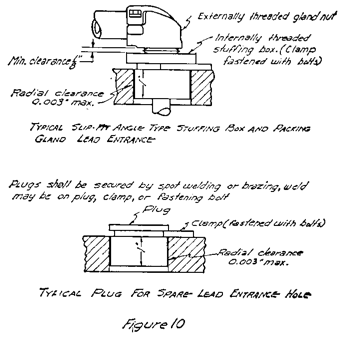 Externally threaded gland nut
Internally threaded
stuffing box. (Clamp
fastened with bolts)
Min. clearance 1/8"
Radial clearance
0.003" max.
TYPICAL SLIP-FIT ANGLE TYPE STUFFING BOX AND PACKING
GLAND LEAD ENTRANCE
Plugs shall be secured by spot welding or brazing, weld
may be on plug, clamp, or fastening bolt
Plug
Clamp (fastened with bolts)
Radial clearance
0.003" max.
TYPICAL PLUG FOR SPARE LEAD ENTRANCE HOLE
Figure 10